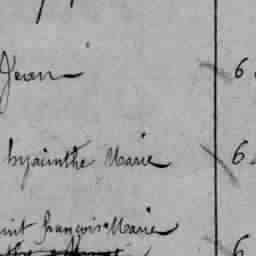 Jean 6
hyacinthe Marie 6
françois Marie
6